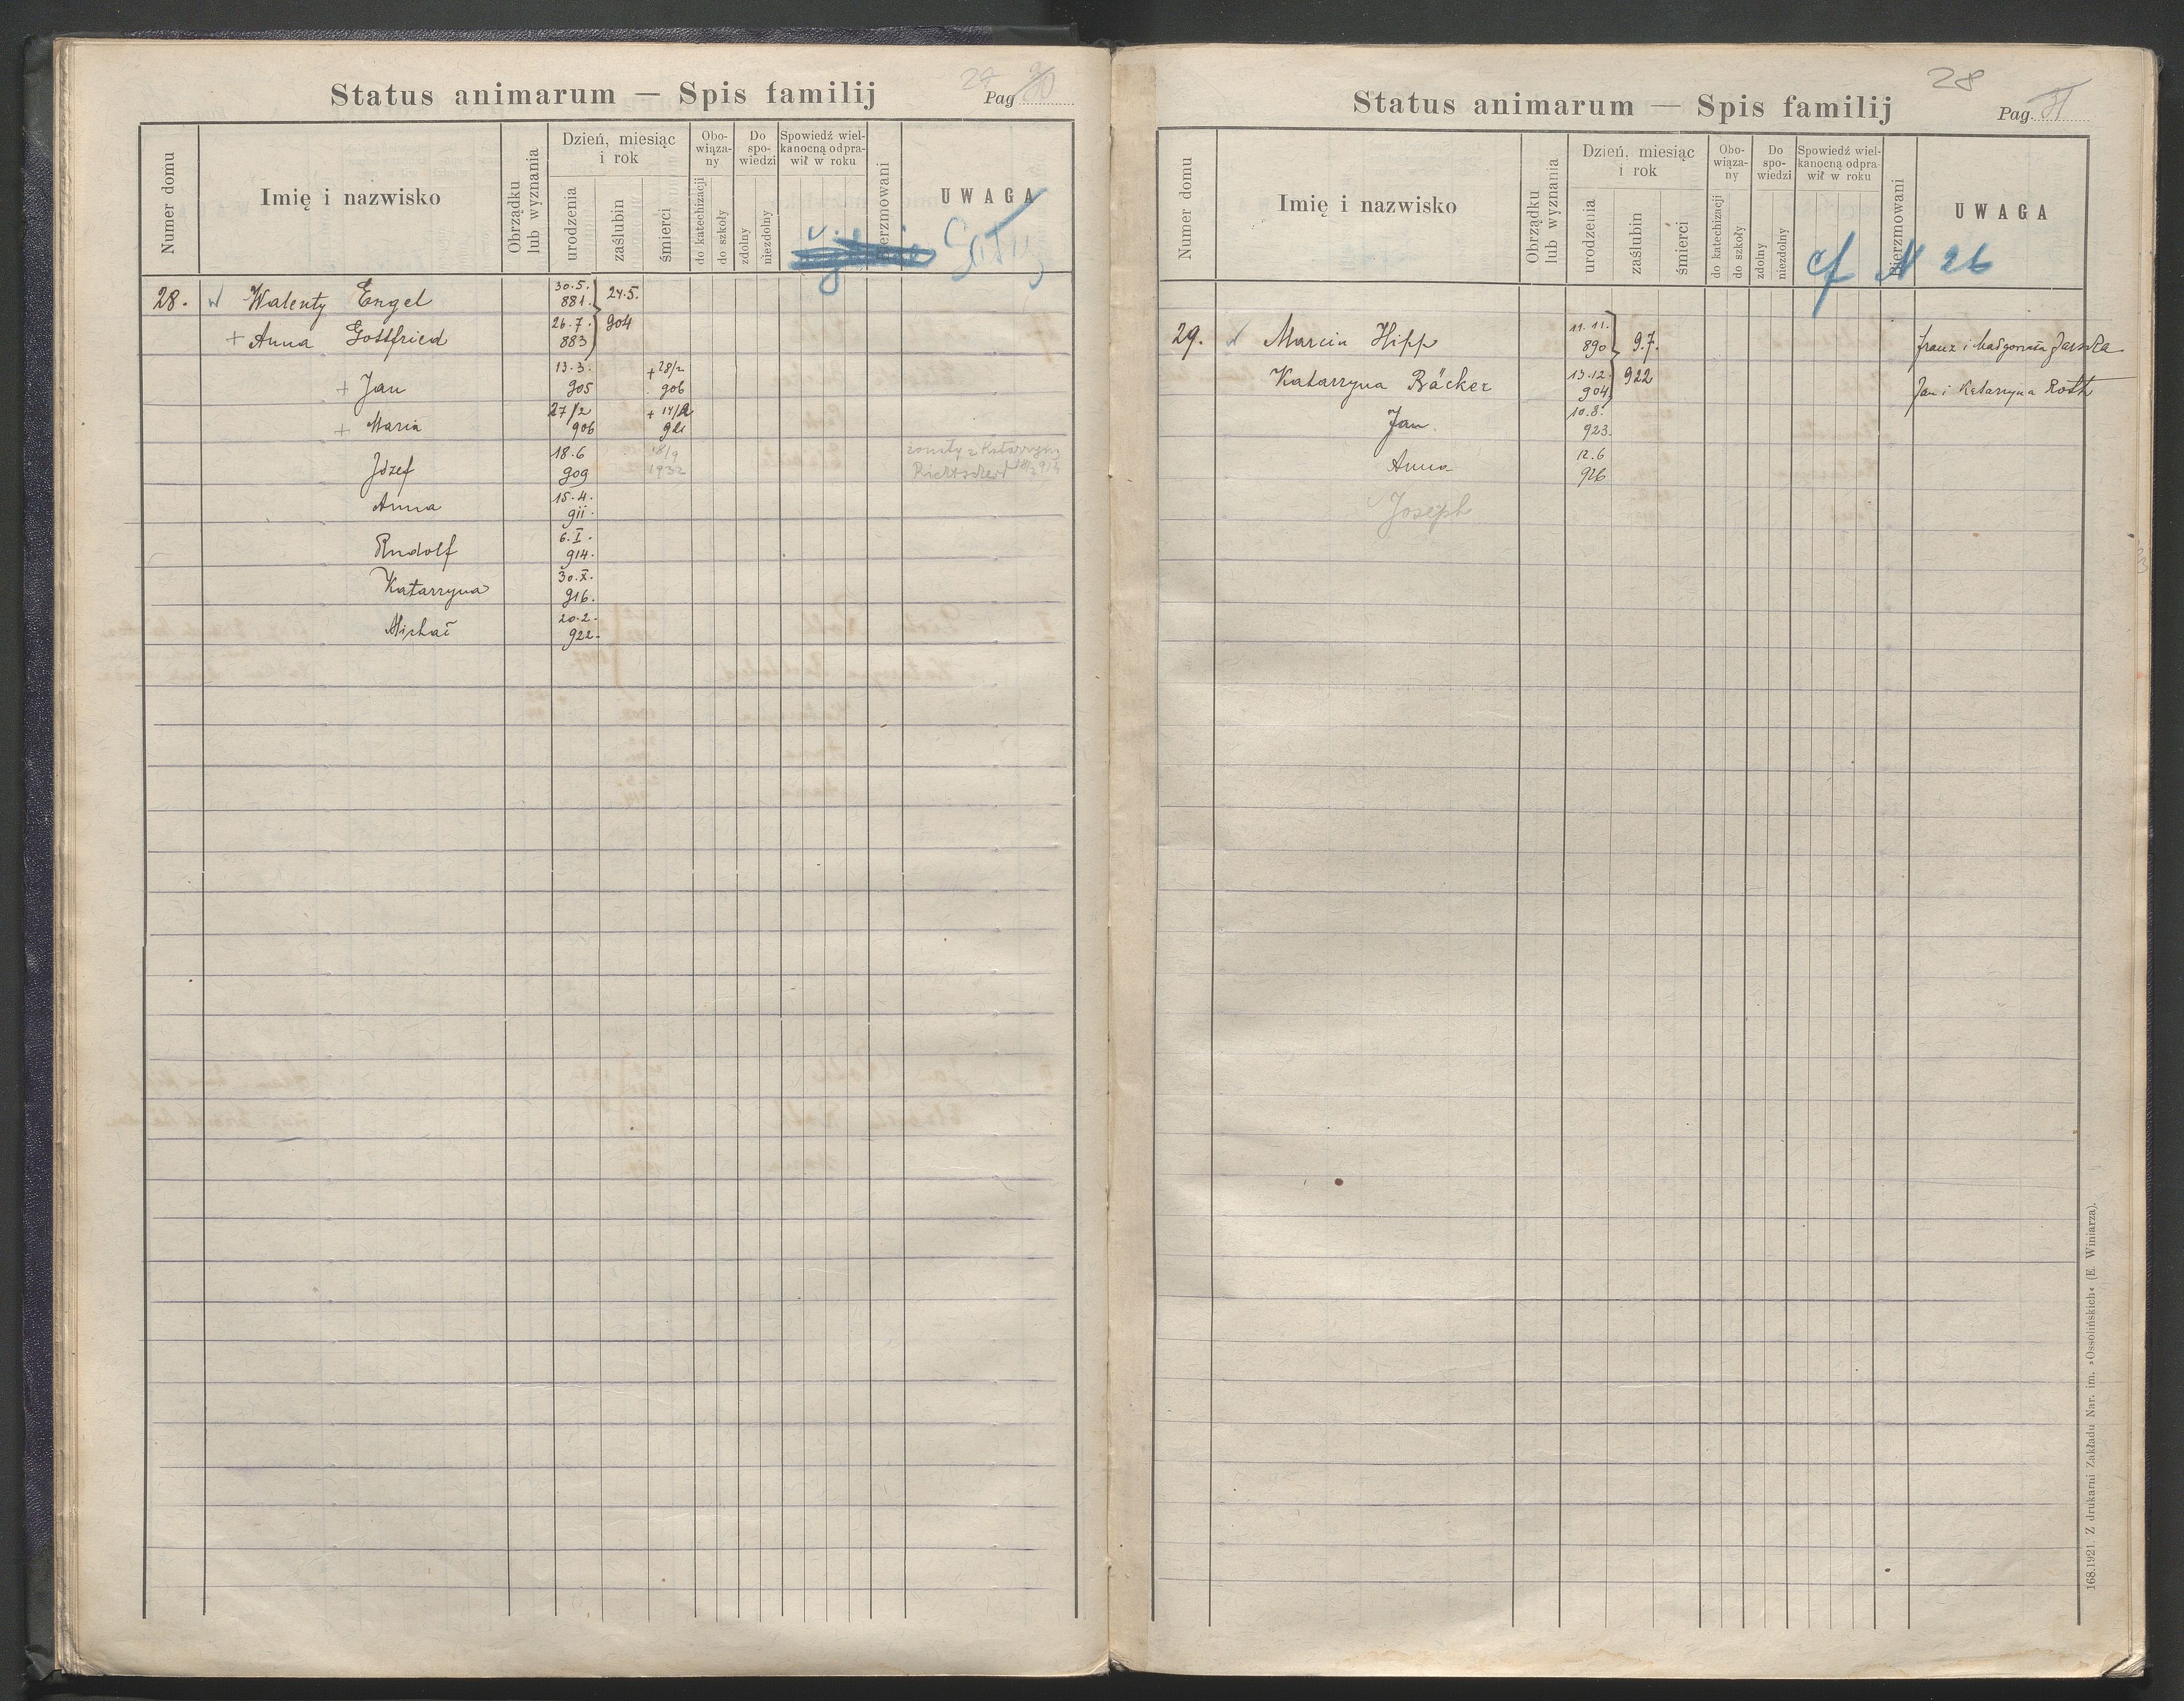 Status animarum — Spis familij
Pag
Numer domu
Imię i nazwisko
Obrządku
lub wyznania
Dzień, miesiąc
i rok
urodzenia
zaślubin
śmierci
Obo-
wiąza-
ny
do katechizacji
do szkoły
Do
spo-
wiedzi
zdolny
niezdolny
Spowiedź wiel-
kanocną odpra-
wił w roku
Bierzmowani
UWAGA
28. Walenty Engel 30.5. 881. 24.5.
+ Anna Gottfried 26.7. 883 904
+ Jan 13.3. 905 + 28/2 906
+ Maria 27/2 906 + 14/2 921
Józef 18.6 909 18/9 1932 żonaty z Katarzyną
Anna 15.4. 911.
Rudolf 6.I. 914.
Katarzyna 30.X. 916.
Michał 20.2. 922.
28
Status animarum — Spis familij
Pag. 31
Numer domu
Imię i nazwisko
Obrządku
lub wyznania
Dzień, miesiąc
i rok
urodzenia
zaślubin
śmierci
Obo-
wiąza-
ny
do katechizacji
do szkoły
Do
spo-
wiedzi
zdolny
niezdolny
Spowiedź wiel-
kanocną odpra-
wił w roku
Bierzmowani
UWAGA
cf N 26
29. Marcin Hipp 11.11. 890 9.7. Franz i Małgorzata
Katarzyna Bäcker 13.12. 904 922 Jan i Katarzyna Roth
Jan 10.8. 923.
Anna 12.6 926
Joseph
168.1921. Z drukarni Zakładu Nar. im. »Ossolińskich« (E. Winiarza).